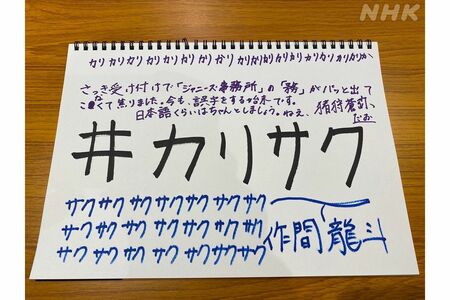 NHK
カリ カリ カリ カリ カリ カリ カリ カリ カリ カリ カリ カリ カリ カリ カリ カリ カリ カ
さっき受け付けで「ジャニーズ事務所」の「務」がパッと出て
こなくて焦りました。今も、誤字をする始末です。
日本語くらいはちゃんとしましょう。ねえ、猪狩蒼弥、
#カリサク
サク サク サク サク サク サク サク
サク サク サク サク サク サク サク
サク サク サク サク サク サク サク
作間龍斗